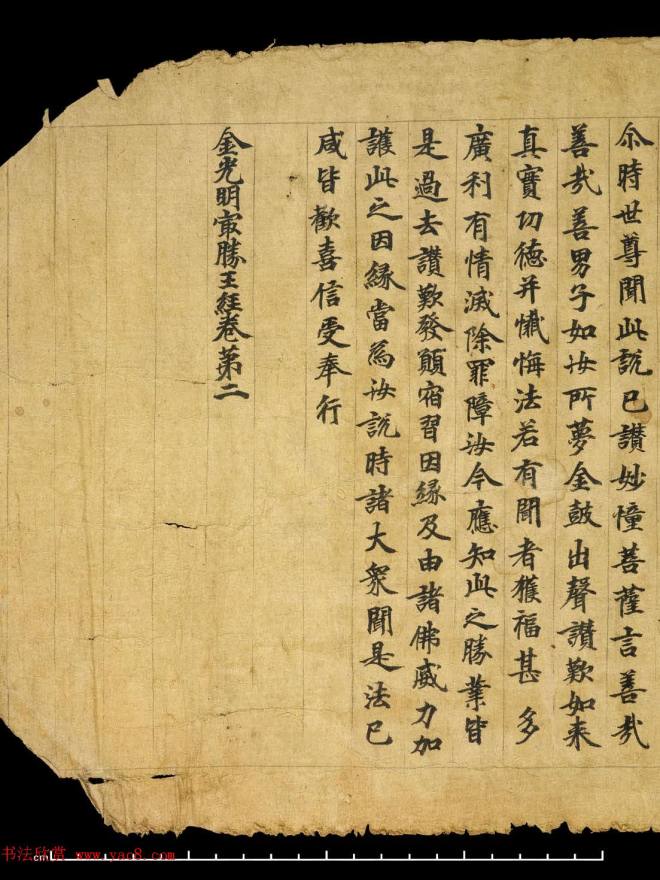 尒時世尊聞此說已讃妙憧菩薩言善哉
善哉善男子如汝所夢金鼓出聲讃歎如来
真實功德并懺悔法若有聞者獲福甚多
廣利有情滅除罪障汝今應知此之勝業皆
是過去讃歎發願宿習因緣及由諸佛威力加
護此之因緣當爲汝說時諸大衆聞是法已
咸皆歡喜信受奉行
金光明冣勝王經卷第二
书法欣赏 www.yac8.com
cm